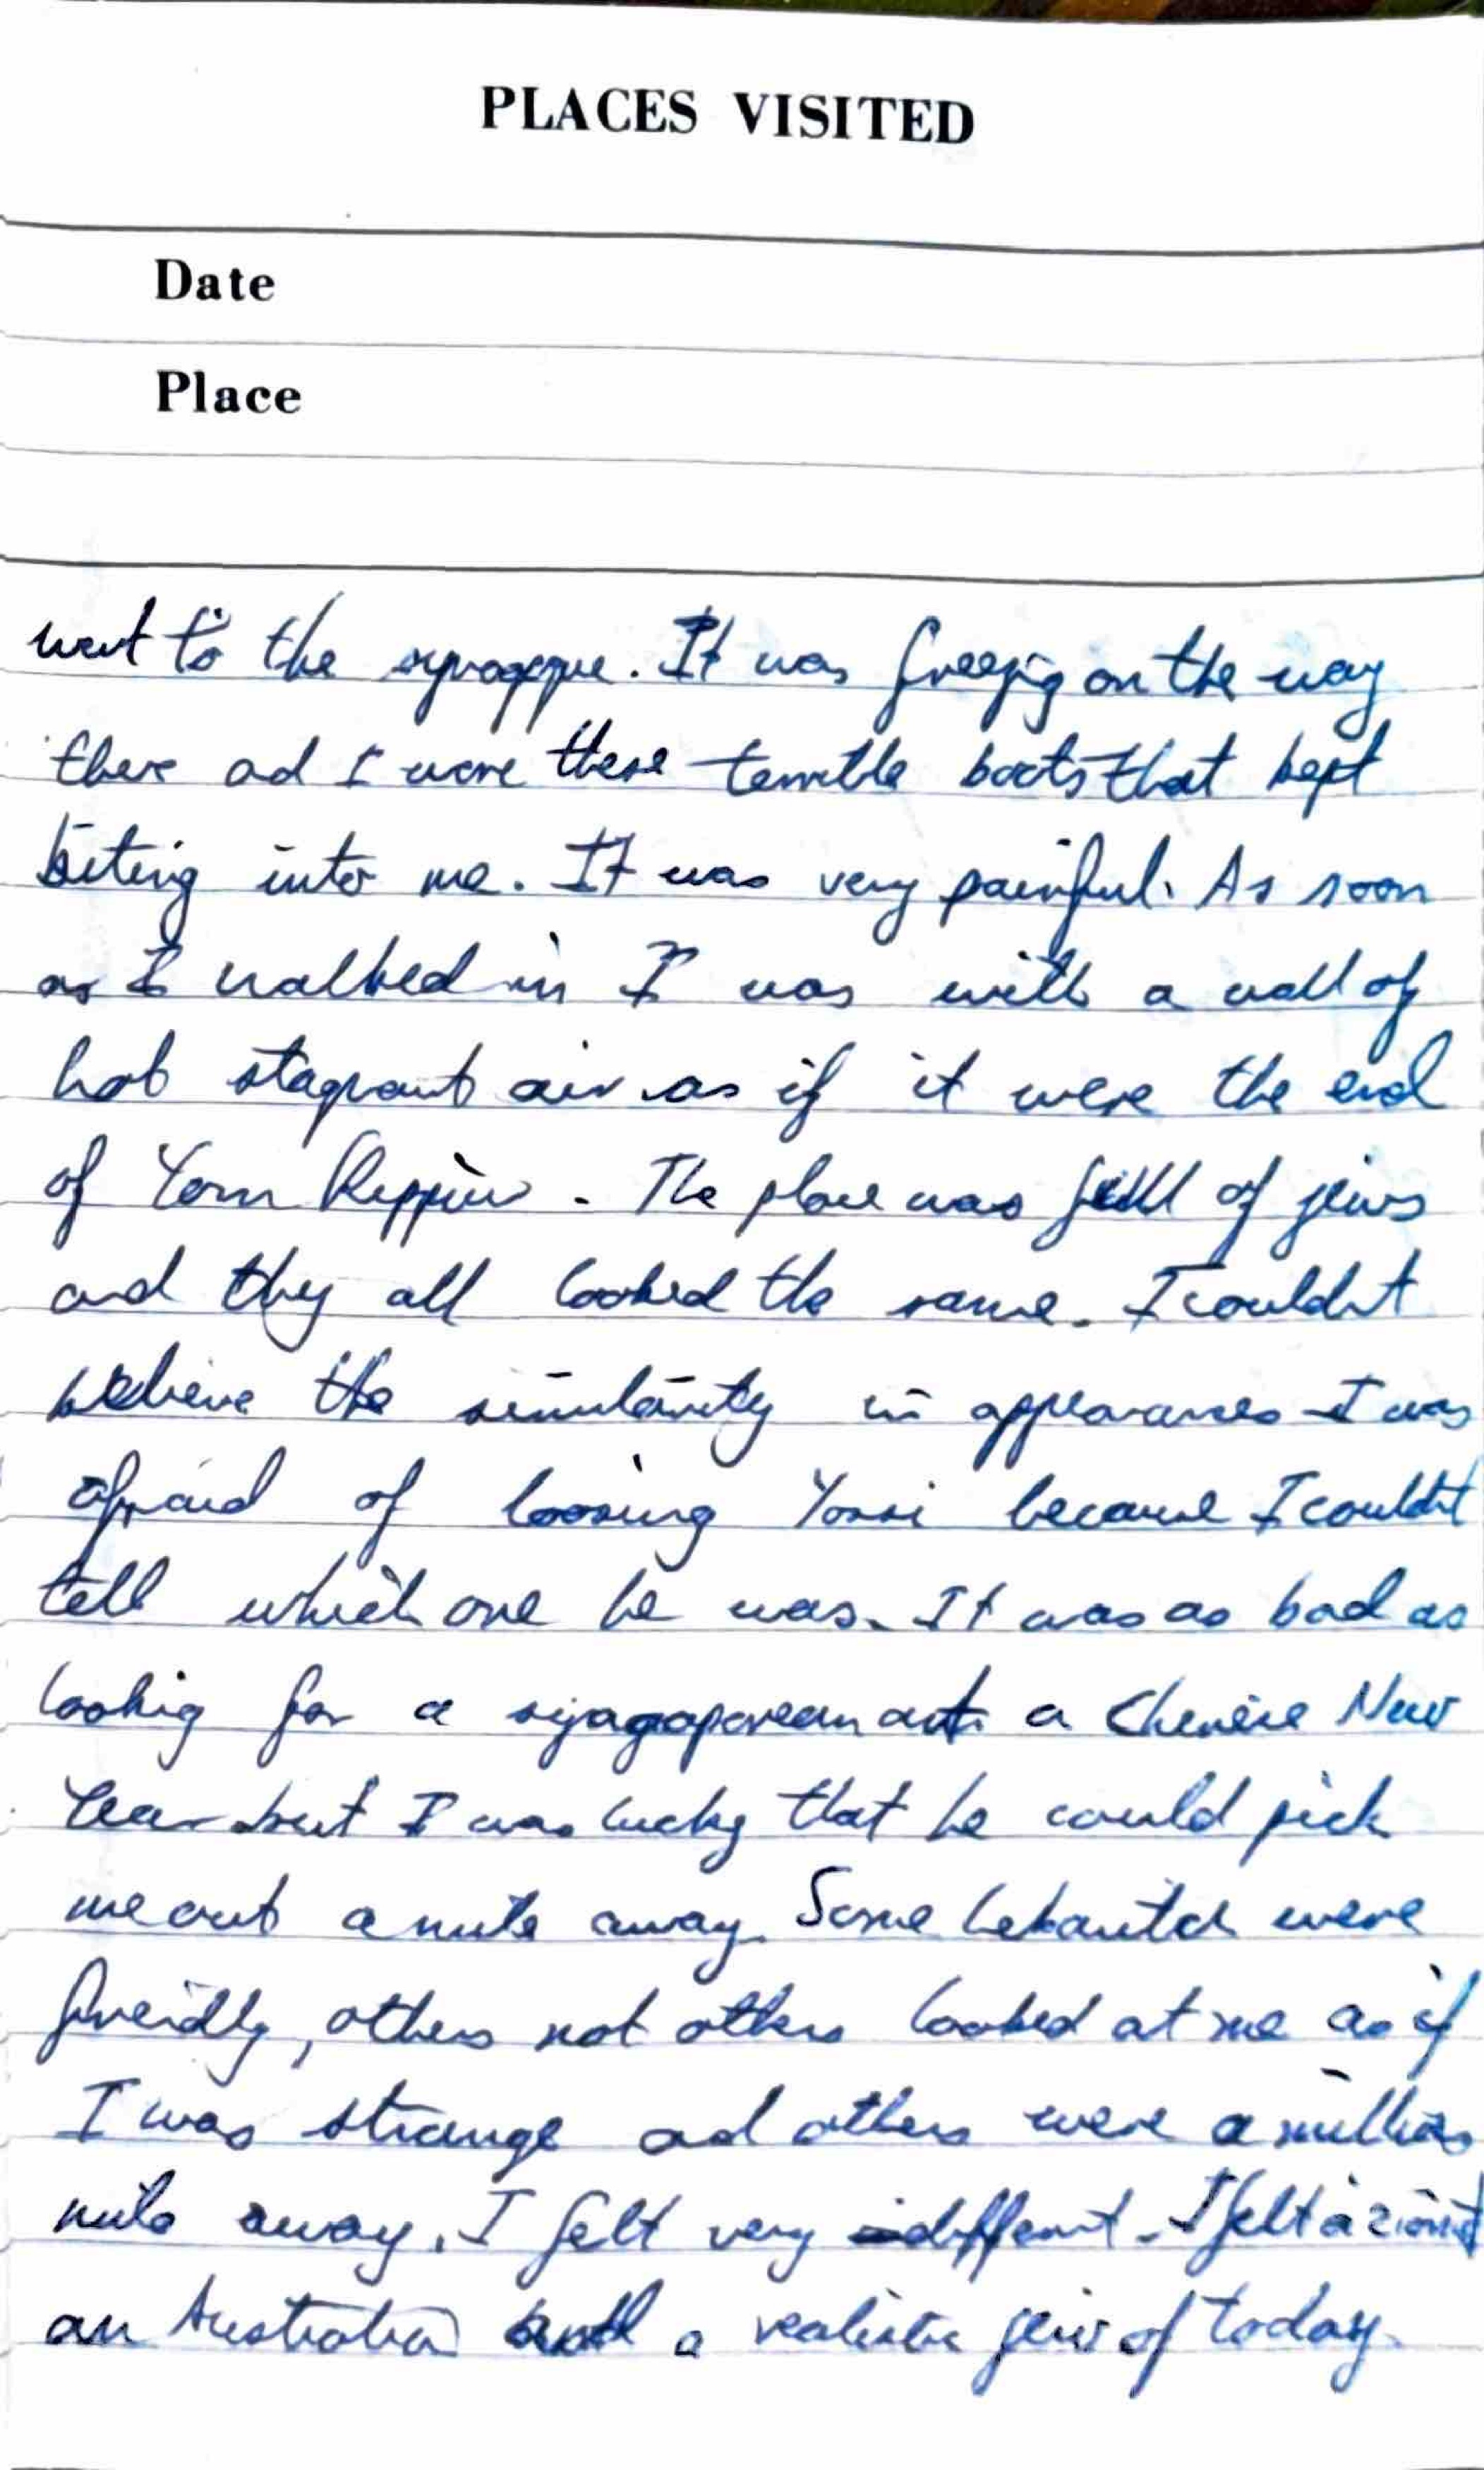 PLACES VISITED
Date
Place
went to the synagogue. It was freezig on the way
there ad I wore these terrible boots that kept
biting into me. It was very painful. As soon
as I walked in I was with a wall of
hot stagnant air as if it were the end
of Yom Kippur. The place was full of jews
and they all looked the same. I couldnt
believe the similarity in appearances I was
afraid of loosing Yossi because I couldnt
tell which one he was. It was as bad as
lookig for a at a Chinese New
Year but I was lucky that he could pick
me out a mile away. Some were
freindly, others not others looked at me as if
I was strange ad others were a million
mile away. I felt very different. I felt a zionist
an Australian and a realistic jew of today.